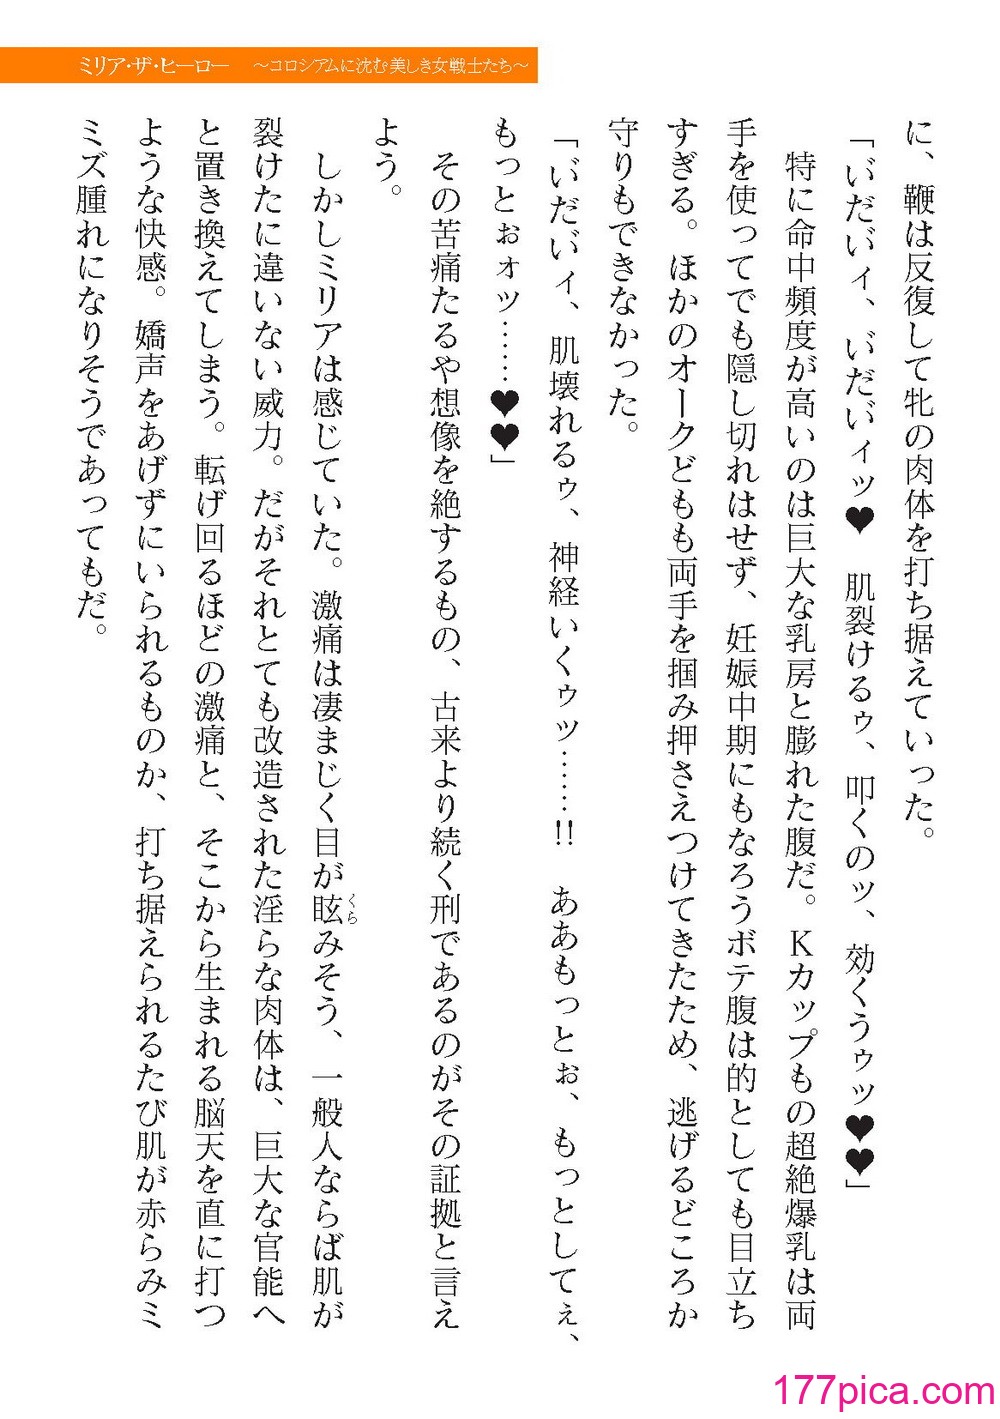 ミリア・ザ・ヒーロー　～コロシアムに沈む美しき女戦士たち～
に、鞭は反復して牝の肉体を打ち据えていった。
「い゛だい゛ィ、い゛だい゛ィッ♥　肌裂けるゥ、叩くのッ、効くうゥッ♥♥」
　特に命中頻度が高いのは巨大な乳房と膨れた腹だ。Ｋカップもの超絶爆乳は両
手を使ってでも隠し切れはせず、妊娠中期にもなろうボテ腹は的としても目立ち
すぎる。ほかのオークどもも両手を掴み押さえつけてきたため、逃げるどころか
守りもできなかった。
「い゛だい゛ィ、肌壊れるゥ、神経いくゥッ……!!　ああもっとぉ、もっとしてぇ、
もっとぉォッ……♥♥」
　その苦痛たるや想像を絶するもの、古来より続く刑であるのがその証拠と言え
よう。
　しかしミリアは感じていた。激痛は凄まじく目が眩くらみそう、一般人ならば肌が
裂けたに違いない威力。だがそれとても改造された淫らな肉体は、巨大な官能へ
と置き換えてしまう。転げ回るほどの激痛と、そこから生まれる脳天を直に打つ
ような快感。嬌声をあげずにいられるものか、打ち据えられるたび肌が赤らみミ
ミズ腫れになりそうであってもだ。
177pica.com